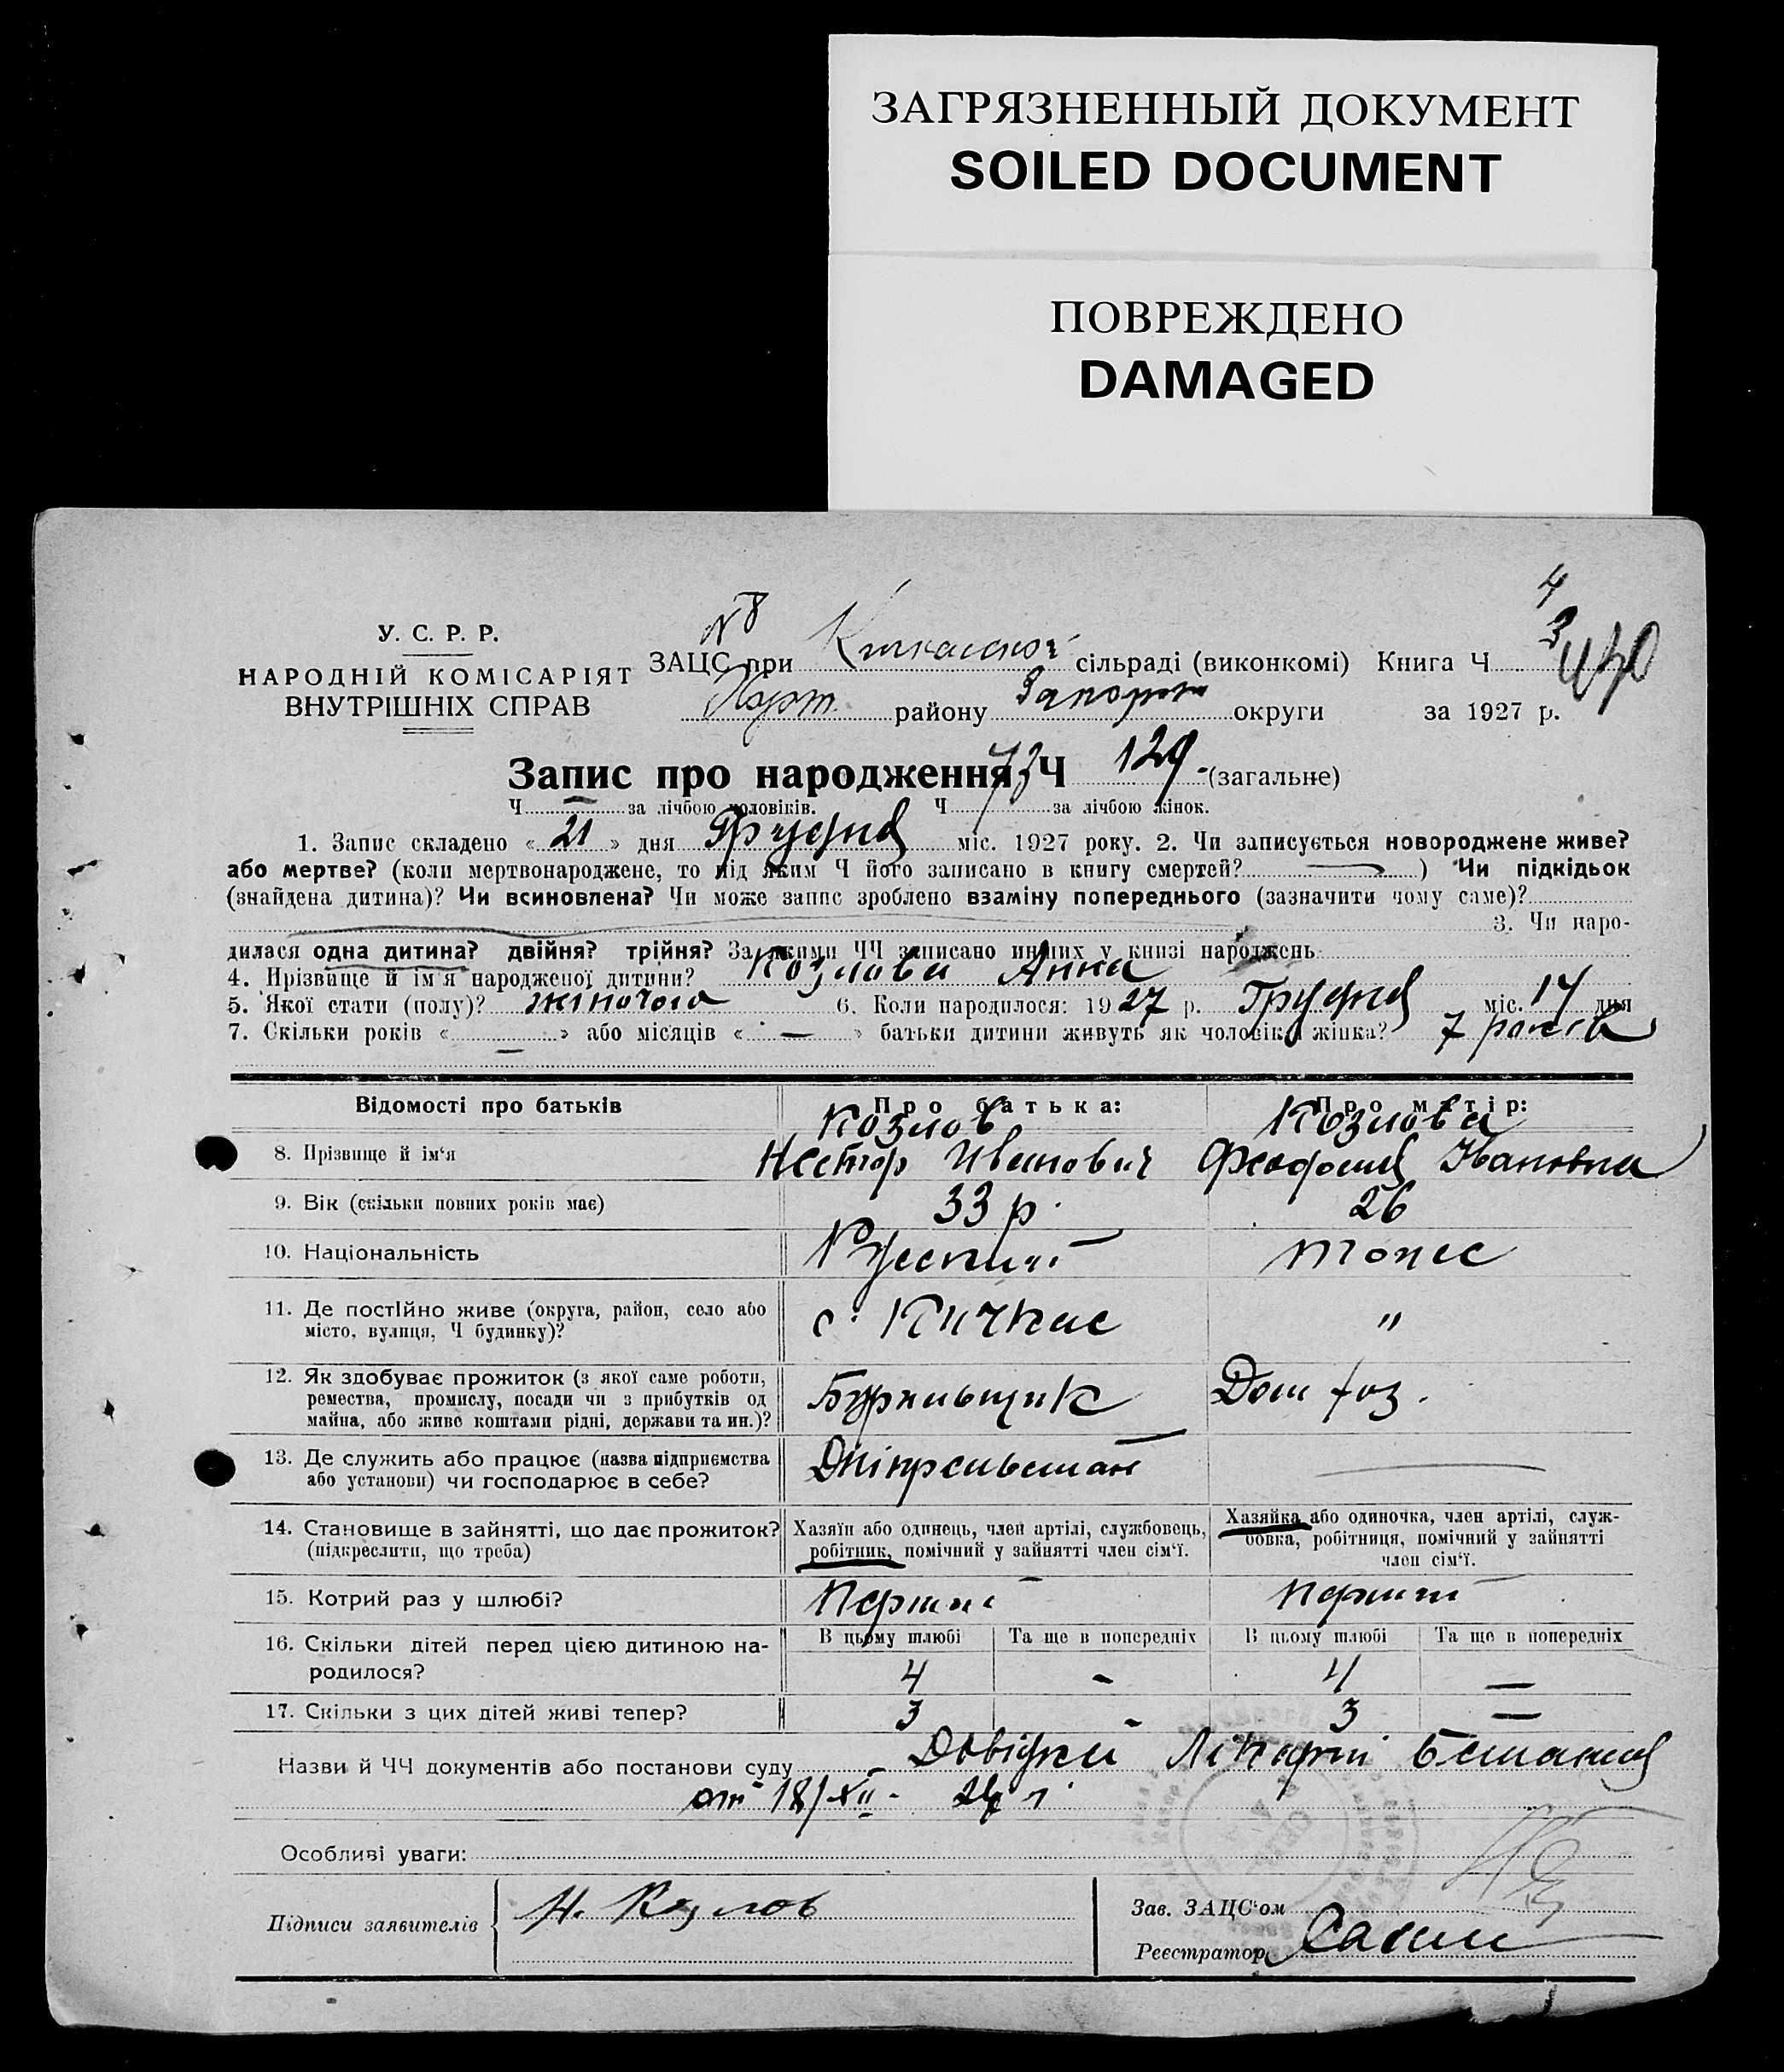 ЗАГРЯЗНЕННЫЙ ДОКУМЕНТ
SOILED DOCUMENT
ПОВРЕЖДЕНО
DAMAGED
4
3
У. С. Р. Р.
НАРОДНІЙ КОМІСАРІЯТ
ВНУТРІШНІХ СПРАВ
N 8
ЗАЦС при Кичкаській сільраді (виконкомі) Книга Ч
Хорт. району Запоріж округи за 1927 р.
Запис про народження Ч 129 (загальне)
Ч — за лічбою чоловіків. Ч 73 за лічбою жінок.
1. Запис складено « 21 » дня Грудня міс. 1927 року. 2. Чи записується новороджене живе?
або мертве? (коли мертвонароджене, то під яким Ч його записано в книгу смертей? — ) Чи підкідьок
(знайдена дитина)? Чи всиновлена? Чи може запис зроблено взаміну попереднього (зазначити чому саме)?
3. Чи наро-
дилася одна дитина? двійня? трійня? За якими ЧЧ записано инших у книзі народжень
4. Прізвище й ім'я народженої дитини? Козлова Анна
5. Якої стати (полу)? жіночого 6. Коли народилося: 1927 р. Грудня міс. 14 дня
7. Скільки років « — » або місяців « — » батьки дитини живуть як чоловік і жінка? 7 років
Відомості про батьків Про батька: Про матір:
Козлов Козлова
8. Прізвище й ім'я Нестор Иванович Феодосия Івановна
9. Вік (скільки повних років має) 33 р. 26
10. Національність Руський тоже
11. Де постійно живе (округа, район, село або
місто, вулиця, Ч будинку)? с. Кичкас "
12. Як здобуває прожиток (з якої саме роботи,
ремества, промислу, посади чи з прибутків од
майна, або живе коштами рідні, держави та ин.)? Бурильщик Дом хоз.
13. Де служить або працює (назва підприємства
або установи) чи господарює в себе? Дніпрельстан —
14. Становище в зайнятті, що дає прожиток?
(підкреслити, що треба)
Хазяїн або одинець, член артілі, службовець,
робітник, помічний у зайнятті член сім'ї.
Хазяйка або одиночка, член артілі, служ-
бовка, робітниця, помічний у зайнятті
член сім'ї.
15. Котрий раз у шлюбі? Перший Перший
16. Скільки дітей перед цією дитиною на-
родилося?
В цьому шлюбі Та ще в попередніх В цьому шлюбі Та ще в попередніх
4 - 4 —
17. Скільки з цих дітей живі тепер? 3 - 3 —
Назви й ЧЧ документів або постанови суду Довідка Лікарні
от 18/XII - 27 г.
Особливі уваги:
Підписи заявителів Н. Козлов
Зав. ЗАЦС'ом
Реєстратор